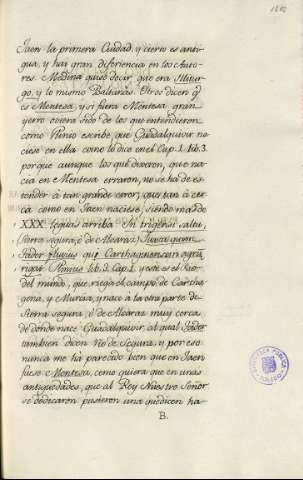 Jaen la primera Ciudad, y cierto es anti-
gua, y hai gran diferiencia en los Auto-
res. Medina quisó decir que era Illitur-
go, y lo mismo Baltanás. Otros dicen q̃
es Mentesa, y si fuera Mentesa gran
yerro oviera sido de los que entendieron
como Plinio escribe, que Guadalquivir na-
ciese en ella como lo dice en el Cap. 1. lib. 3.
porque aunque los que dixeron, que na-
cia en Mentesa erraron, no se ha de es-
tender à tan grande error, que tan à cer-
ca como en Jaen naciese, siendo mas de
XXX. leguas arriba.
(sierra segura, ó de Alcaraz.) Iuxta quem
Tader fluvius qui Carthaginensem agrũ
rigat. Plinius lib. 3. Cap. 1. y este es el Rio
del mundo, que riega el campo de Cartha-
gena, y Murcia, y nace à la otra parte de
Sierra segura, ó de Alcaraz muy cerca
de donde nace Guadalquivir al qual Tader
tambien dicen Rio de Segura, y por eso
nunca me ha parecido bien que en Jaen
fuese Mentesa, como quiera que en unas
antiguedades, que al Rey Nuestro Señor
se dedicaron pusieron una que dicen ha-
B.